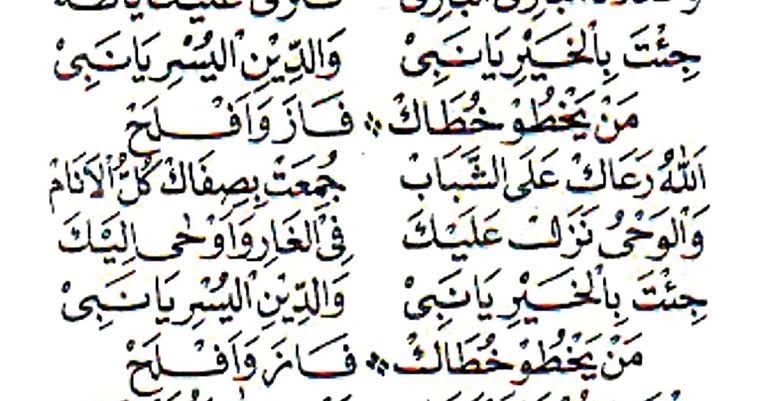 جِئْتَ بِالْخَيْرِ يَانَبِىْ وَالدِّيْنِ الْيُسْرِ يَانَبِىْ
مَنْ يَخْطُوْ خُطَاكْ ❖ فَازَ وَاَفْلَحْ
اَللهُ رَعَاكْ عَلَى الشَّبَابْ جُمِعَتْ بِصِفَاكْ كُلُّ الْاَنَامْ
وَالْوَحْىُ نَزَلْ عَلَيْكَ فِى الْغَارِ وَاَوْحٰى اِلَيْكَ
جِئْتَ بِالْخَيْرِ يَانَبِىْ وَالدِّيْنِ الْيُسْرِ يَانَبِىْ
مَنْ يَخْطُوْ خُطَاكْ ❖ فَازَ وَاَفْلَحْ